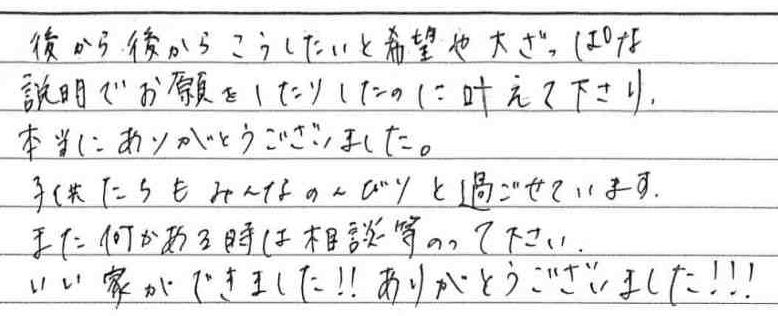 後から後からこうしたいと希望や大ざっぱな
説明でお願をしたりしたのに叶えて下さり、
本当にありがとうございました。
子供たちもみんなのんびりと過ごせています。
また何かある時は相談等のって下さい。
いい家ができました!!ありがとうございました!!!